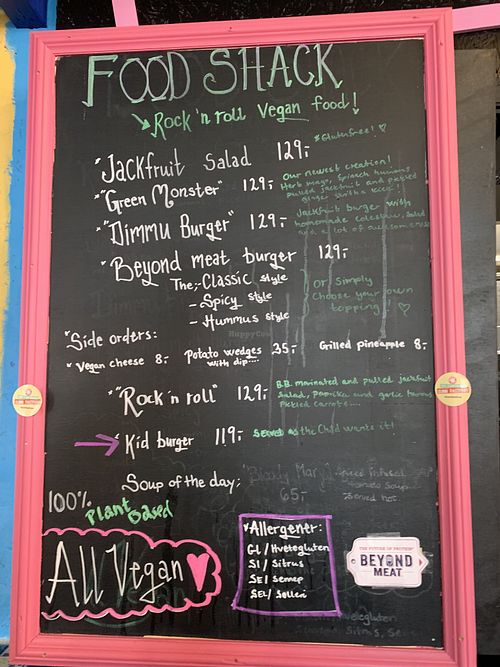 FOOD SHACK
Rock 'n roll Vegan food!
*Jackfruit Salad 129;-
*Glutenfree! ♡
*"Green Monster" 129;-
Our newest creation!
Herb mayo, Spinach hummus
pulled jackfruit and pickled
ginger
*"Dimmu Burger" 129;-
Jackfruit burger with
homemade coleslaw, Salad
and a lot of awesomeness
*Beyond meat burger 129;-
The;-Classic style
- Spicy style
- Hummus style
Or Simply
choose your own
topping! ♡
HappyCow
*Side orders:
*Vegan cheese 8;-
Potato wedges 35;-
with dip....
Grilled pineapple 8;-
*"Rock 'n roll" 129;-
B.B. marinated and pulled jackfruit
Salad, Paprika and garlic hummus
Pickled carrots....
*Kid burger 119;-
Served as the Child wants it!
Soup of the day:
"Bloody Mary"
tomato Soup
Served hot
65;-
100%
Plant based
All Vegan
*Allergener:
GL / Hvetegluten
SI / Sitrus
SE / Senep
SEL / Selleri
THE FUTURE OF PROTEIN
BEYOND
MEAT